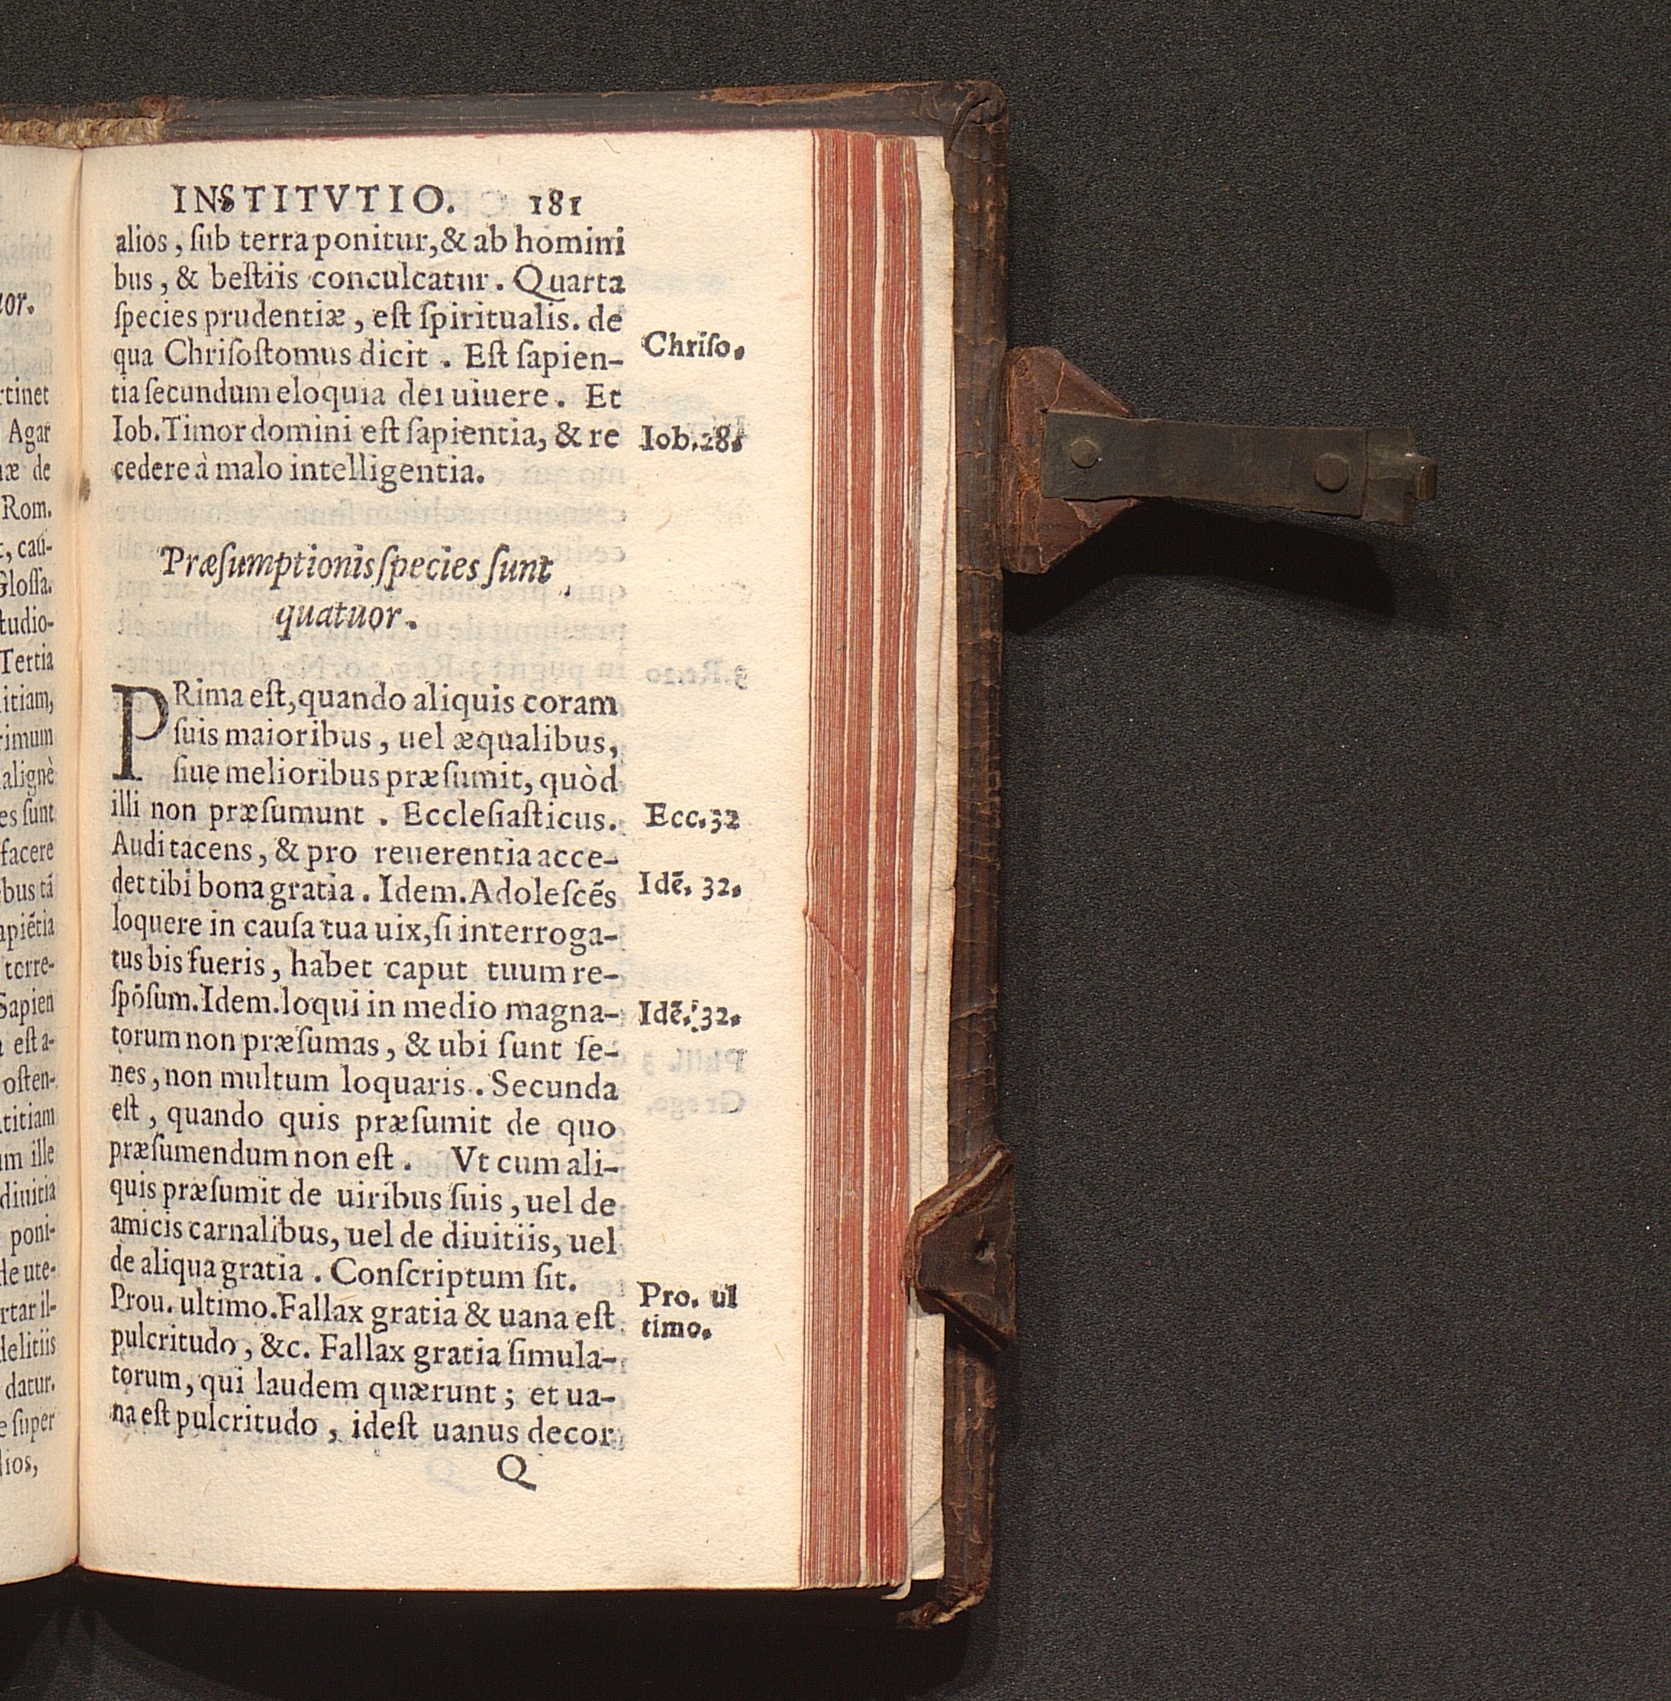 INSTITVTIO. 181
alios, ſub terra ponitur, & ab homini
bus, & beſtiis conculcatur. Quarta
ſpecies prudentiæ, eſt ſpiritualis. de
qua Chriſoſtomus dicit. Eſt ſapien-
Chriſo.
tia ſecundum eloquia dei uiuere. Et
Iob. Timor domini eſt ſapientia, & re
Iob.28.
cedere à malo intelligentia.
Præſumptionis ſpecies ſunt
quatuor.
PRima eſt, quando aliquis coram
ſuis maioribus, uel æqualibus,
ſiue melioribus præſumit, quòd
illi non præſumunt. Eccleſiaſticus.
Ecc.32
Audi tacens, & pro reuerentia acce-
det tibi bona gratia. Idem. Adoleſcẽs
Idẽ. 32.
loquere in cauſa tua uix, ſi interroga-
tus bis fueris, habet caput tuum re-
ſpõſum. Idem. loqui in medio magna-
Idẽ. 32.
torum non præſumas, & ubi ſunt ſe-
nes, non multum loquaris. Secunda
eſt, quando quis præſumit de quo
præſumendum non eſt. Vt cum ali-
quis præſumit de uiribus ſuis, uel de
amicis carnalibus, uel de diuitiis, uel
de aliqua gratia. Conſcriptum ſit.
Prou. ultimo. Fallax gratia & uana eſt
Pro. ul
timo.
pulcritudo, &c. Fallax gratia ſimula-
torum, qui laudem quærunt; et ua-
na eſt pulcritudo, ideſt uanus decor
Q